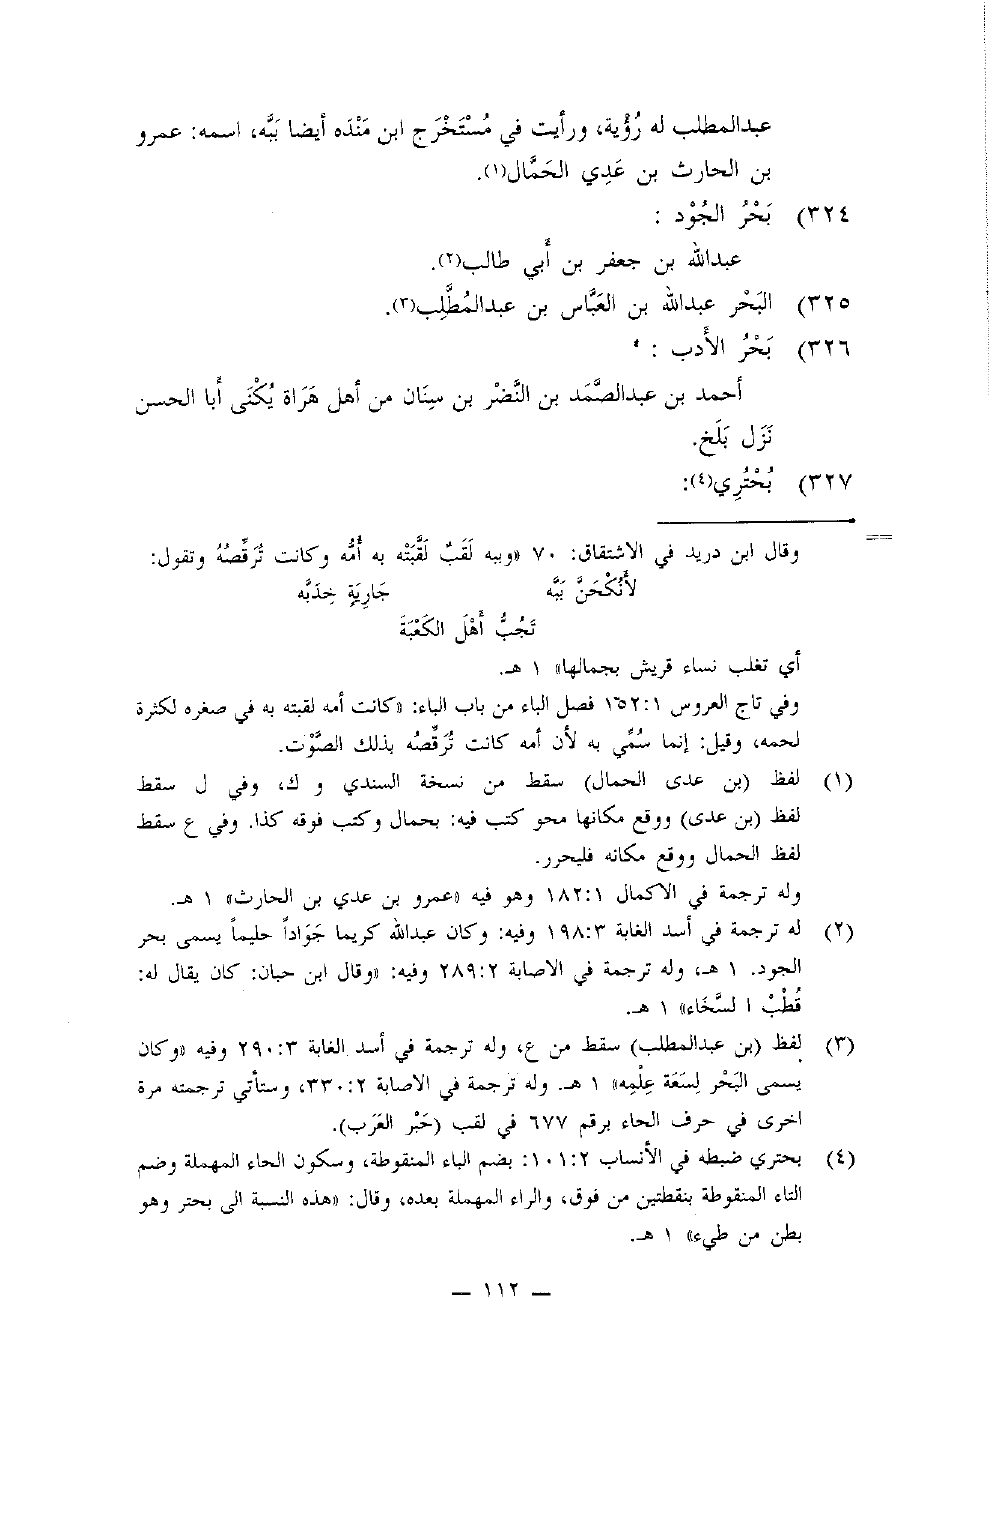 عبدالمطلب له رُؤْية، ورأيت في مُسْتَخْرَج ابن مَنْدَه أيضا بَبَّه، اسمه: عمرو
بن الحارث بن عَدِي الحَمَّال(١).
٣٢٤) بَحْرُ الجُوْد :
عبدالله بن جعفر بن أَبي طالب(٢).
٣٢٥) البَحْر عبدالله بن العَبَّاس بن عبدالمُطَّلِب(٣).
٣٢٦) بَحْرُ الأَدب :
أحمد بن عبدالصَّمَد بن النَّضْر بن سِنَان من أهل هَرَاة يُكْنَى أَبا الحسن
نَزَل بَلَخ.
٣٢٧) بُحْتُرِي(٤):
== وقال ابن دريد في الاشتقاق: ٧٠ «وببه لَقَبٌ لَقَّبَتْه به أُمُّه وكانت تُرَقِّصُهُ وتقول:
لأَنْكُحَنَّ بَبَّه جَارِيَةٍ خِدَبَّه
تَجُبُّ أَهْلَ الكَعْبَةَ
أي تغلب نساء قريش بجمالها» ١ هـ.
وفي تاج العروس ١٥٢:١ فصل الباء من باب الباء: «كانت أمه لقبته به في صغره لكثرة
لحمه، وقيل: إنما سُمِّي به لأن أمه كانت تُرَقِّصُه بذلك الصَّوْت.
(١) لفظ (بن عدى الحمال) سقط من نسخة السندي و ك، وفي ل سقط
لفظ (بن عدى) ووقع مكانها محو كتب فيه: بحمال وكتب فوقه كذا. وفي ع سقط
لفظ الحمال ووقع مكانه فليحرر.
وله ترجمة في الاكمال ١٨٢:١ وهو فيه «عمرو بن عدي بن الحارث» ١ هـ.
(٢) له ترجمة في أسد الغابة ١٩٨:٣ وفيه: وكان عبدالله كريما جَوَاداً حليماً يسمى بحر
الجود. ١ هـ، وله ترجمة في الاصابة ٢٨٩:٢ وفيه: «وقال ابن حبان: كان يقال له:
قُطْبْ ا لسَّخَاء» ١ هـ.
(٣) لفظ (بن عبدالمطلب) سقط من ع، وله ترجمة في أسد الغابة ٢٩٠:٣ وفيه «وكان
يسمى البَحْر لِسَعَة عِلْمِه» ١ هـ. وله ترجمة في الاصابة ٣٣٠:٢، وستأتي ترجمته مرة
اخرى في حرف الحاء برقم ٦٧٧ في لقب (حَبْر العَرَب).
(٤) بحتري ضبطه في الأنساب ١٠١:٢: بضم الباء المنقوطة، وسكون الحاء المهملة وضم
التاء المنقوطة بنقطتين من فوق، والراء المهملة بعده، وقال: «هذه النسبة الى بحتر وهو
بطن من طيء» ١ هـ.
— ١١٢ —